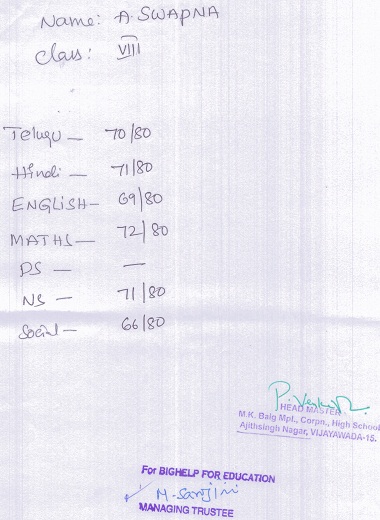 Name: A. SWAPNA
class: VIII
Telugu — 70/80
Hindi — 71/80
ENGLISH — 69/80
MATHS — 72/80
PS — —
NS — 71/80
Social — 66/80
HEAD MASTER
M.K. Baig Mpl., Corpn., High School
Ajithsingh Nagar, VIJAYAWADA-15.
For BIGHELP FOR EDUCATION
MANAGING TRUSTEE